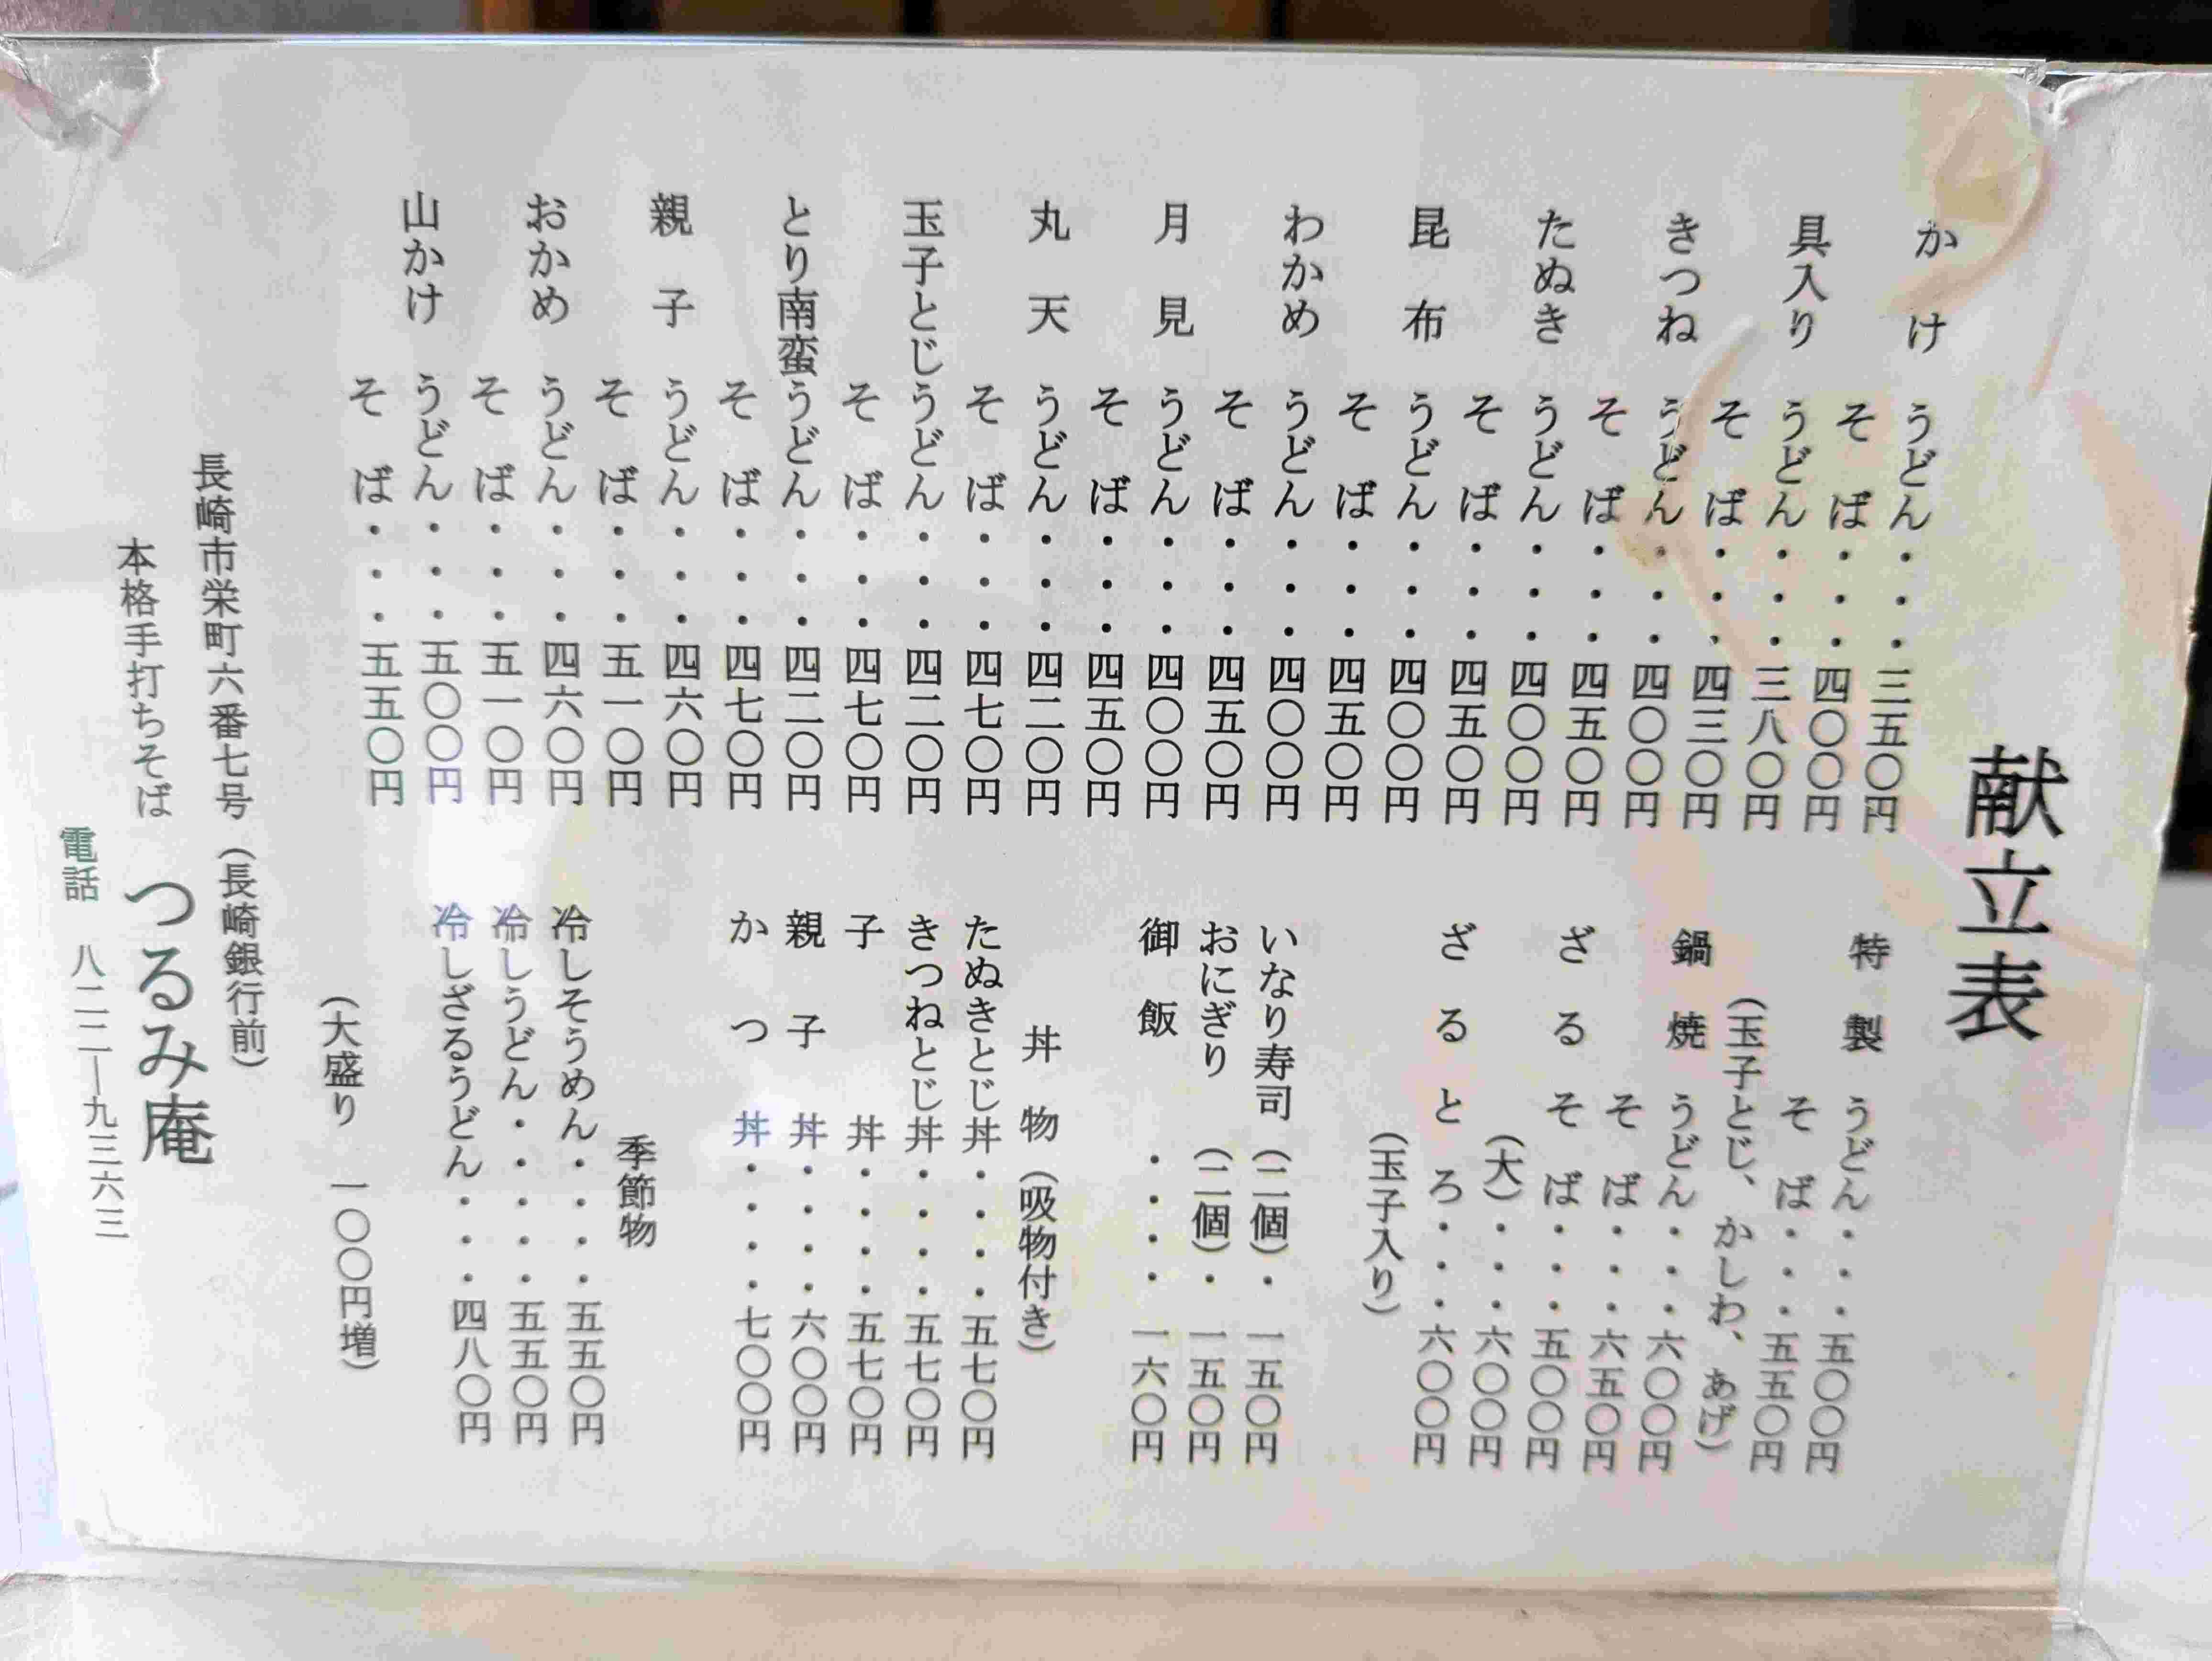 献立表
かけ うどん・・・三五〇円
そば・・・四〇〇円
具入り うどん・・・三八〇円
そば・・・四三〇円
きつね うどん・・・四〇〇円
そば・・・四五〇円
たぬき うどん・・・四〇〇円
そば・・・四五〇円
昆布 うどん・・・四〇〇円
そば・・・四五〇円
わかめ うどん・・・四〇〇円
そば・・・四五〇円
月見 うどん・・・四〇〇円
そば・・・四五〇円
丸天 うどん・・・四二〇円
そば・・・四七〇円
玉子とじ うどん・・・四二〇円
そば・・・四七〇円
とり南蛮 うどん・・・四二〇円
そば・・・四七〇円
親子 うどん・・・四六〇円
そば・・・五一〇円
おかめ うどん・・・四六〇円
そば・・・五一〇円
山かけ うどん・・・五〇〇円
そば・・・五五〇円
特製 うどん・・・五〇〇円
そば・・・五五〇円
(玉子とじ、かしわ、あげ)
鍋焼 うどん・・・六〇〇円
そば・・・六五〇円
ざるそば・・・五〇〇円
(大)・・・六〇〇円
ざるとろ・・・六〇〇円
(玉子入り)
いなり寿司(二個)・一五〇円
おにぎり(二個)・一五〇円
御飯・・・・一六〇円
丼物(吸物付き)
たぬきとじ丼・・・・五七〇円
きつねとじ丼・・・・五七〇円
子丼・・・・五七〇円
親子丼・・・・六〇〇円
かつ丼・・・・七〇〇円
季節物
冷しそうめん・・・・五五〇円
冷しうどん・・・・・五五〇円
冷しざるうどん・・・四八〇円
(大盛り 一〇〇円増)
長崎市栄町六番七号(長崎銀行前)
本格手打ちそば つるみ庵
電話 八二二―九三六三